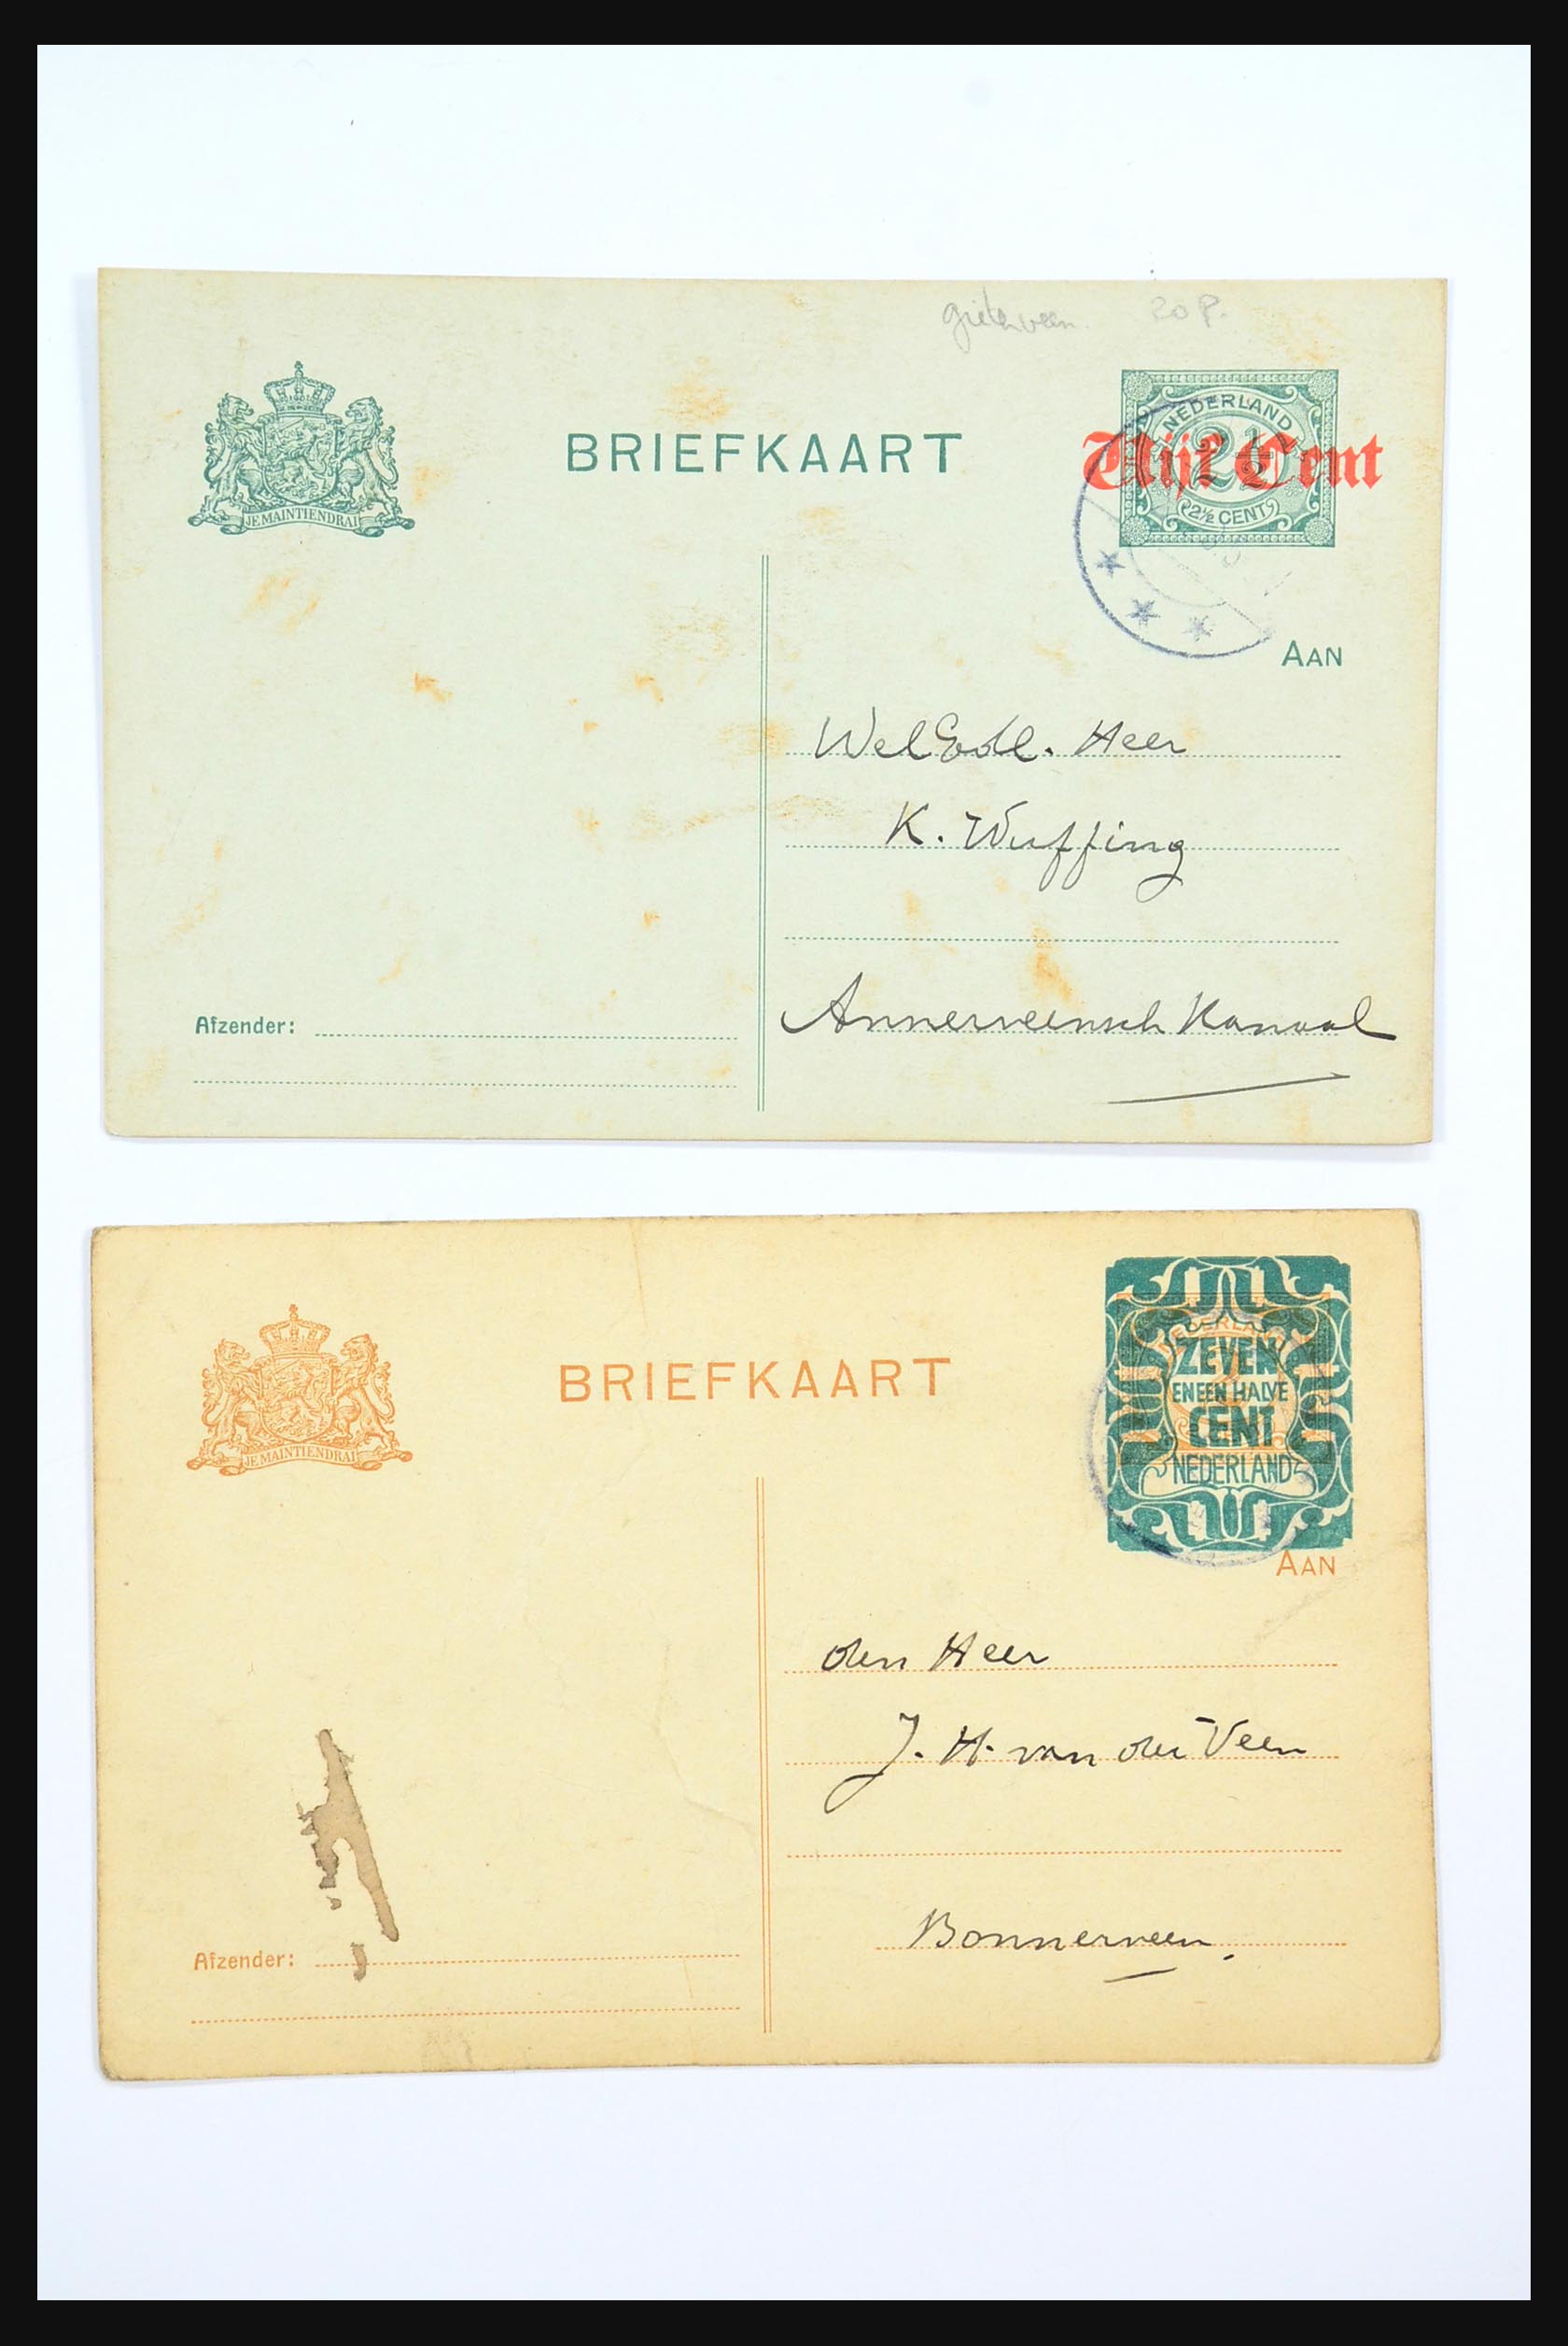 Gieterveen. 20 P.
JE MAINTIENDRAI
BRIEFKAART
NEDERLAND
2½
Vijf Cent
2½ CENT
AAN
WelEdl. Heer
K. Wuffing
Annerveensch Kanaal
Afzender:
JE MAINTIENDRAI
BRIEFKAART
ZEVEN
EN EEN HALVE
CENT
NEDERLAND
AAN
den Heer
J. H. van der Veen
Bonnerveen.
Afzender: